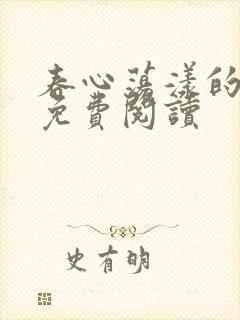 春心蕩漾的
免費閱讀
史有明